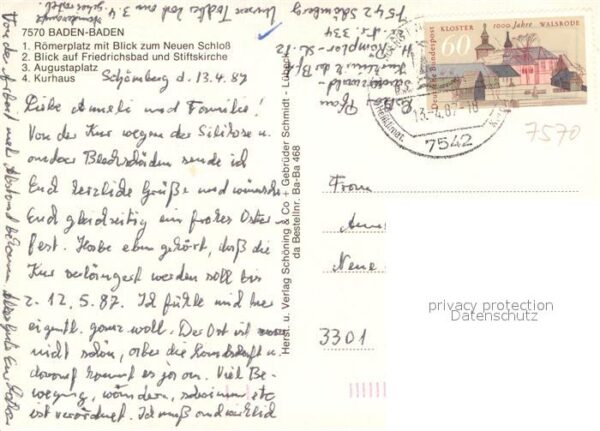 7570 BADEN-BADEN
1. Römerplatz mit Blick zum Neuen Schloß
2. Blick auf Friedrichsbad und Stiftskirche
3. Augustaplatz
4. Kurhaus
Schömberg d. 13.4.87
Liebe Anneli und Familie!
Von der Kur wegen der Silikose u.
anderer Blechschäden sende ich
Euch herzliche Grüße und wünsche
Euch gleichzeitig ein frohes Oster-
fest. Habe eben gehört, daß die
Kur verlängert werden soll bis
z. 12.5.87. Ich fühle mich hier
eigentl. ganz wohl. Der Ort ist
nicht schön, aber die Landschaft u.
darauf kommt es ja an. Viel Be-
wegung, wandern, schwimmen etc
ist verordnet. Ich muß auch wirklich
Von der Arbeit mehr Abstand
7542 Schömberg
Herst. u. Verlag Schöning & Co + Gebrüder Schmidt - Lübeck
da Bestellnr. Ba-Ba 468
Deutsche Bundespost
60
KLOSTER 1000 Jahre WALSRODE
13.-4.87-18
7542
7570
Frau
Neue
3301
privacy protection
Datenschutz